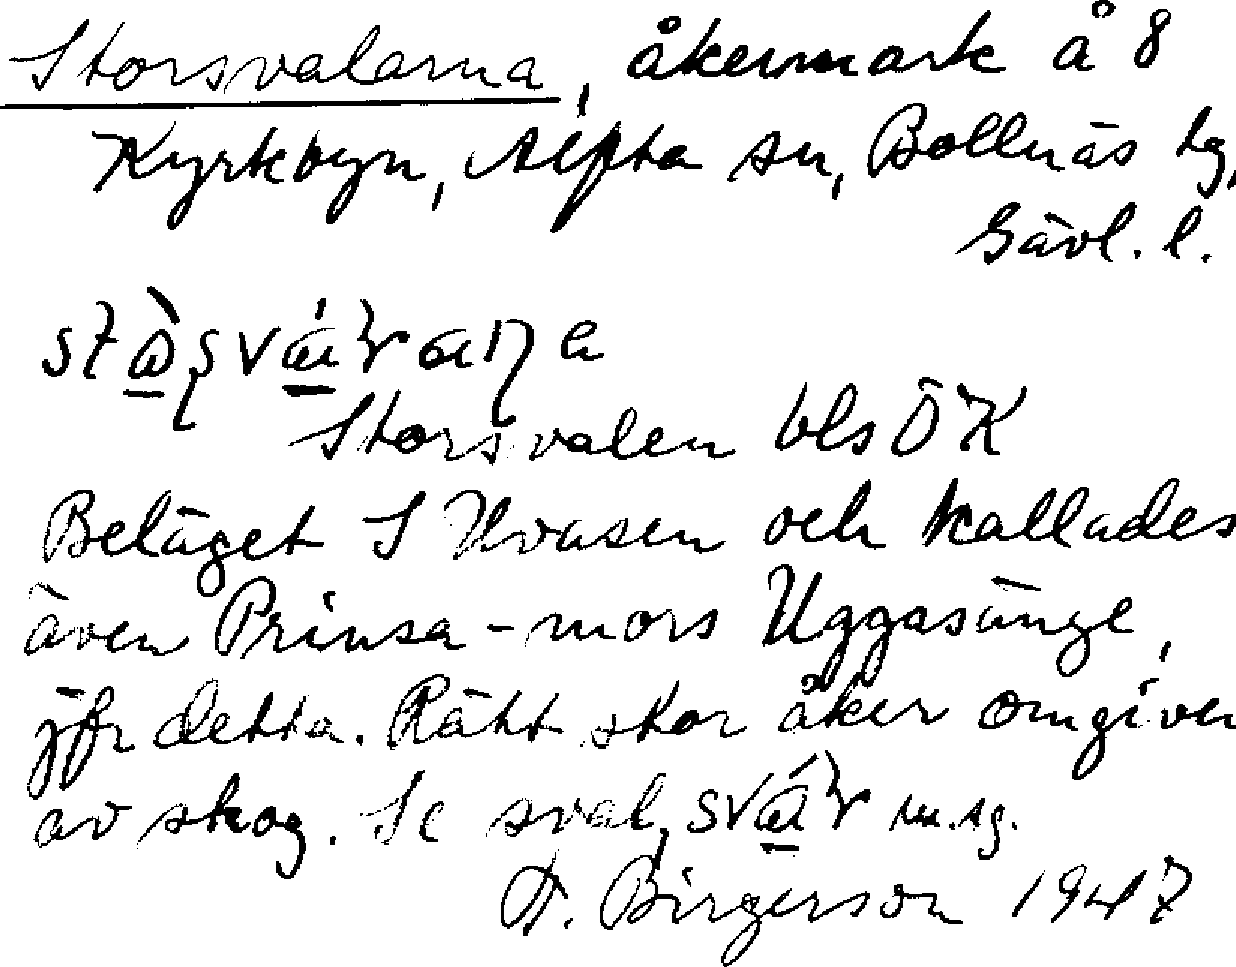 Storsvalarna, åkermark å 8
Kyrkbyn, Alfta sn, Bollnäs tg,
Gävl. l.
Storsvalen bls ÖK
Beläget S Hvusen och kallades
även Prinsa-mors Uggasänge,
jfr detta. Rätt stor åker omgiven
av skog. Se sval, m.sg.
F. Birgerson 1947